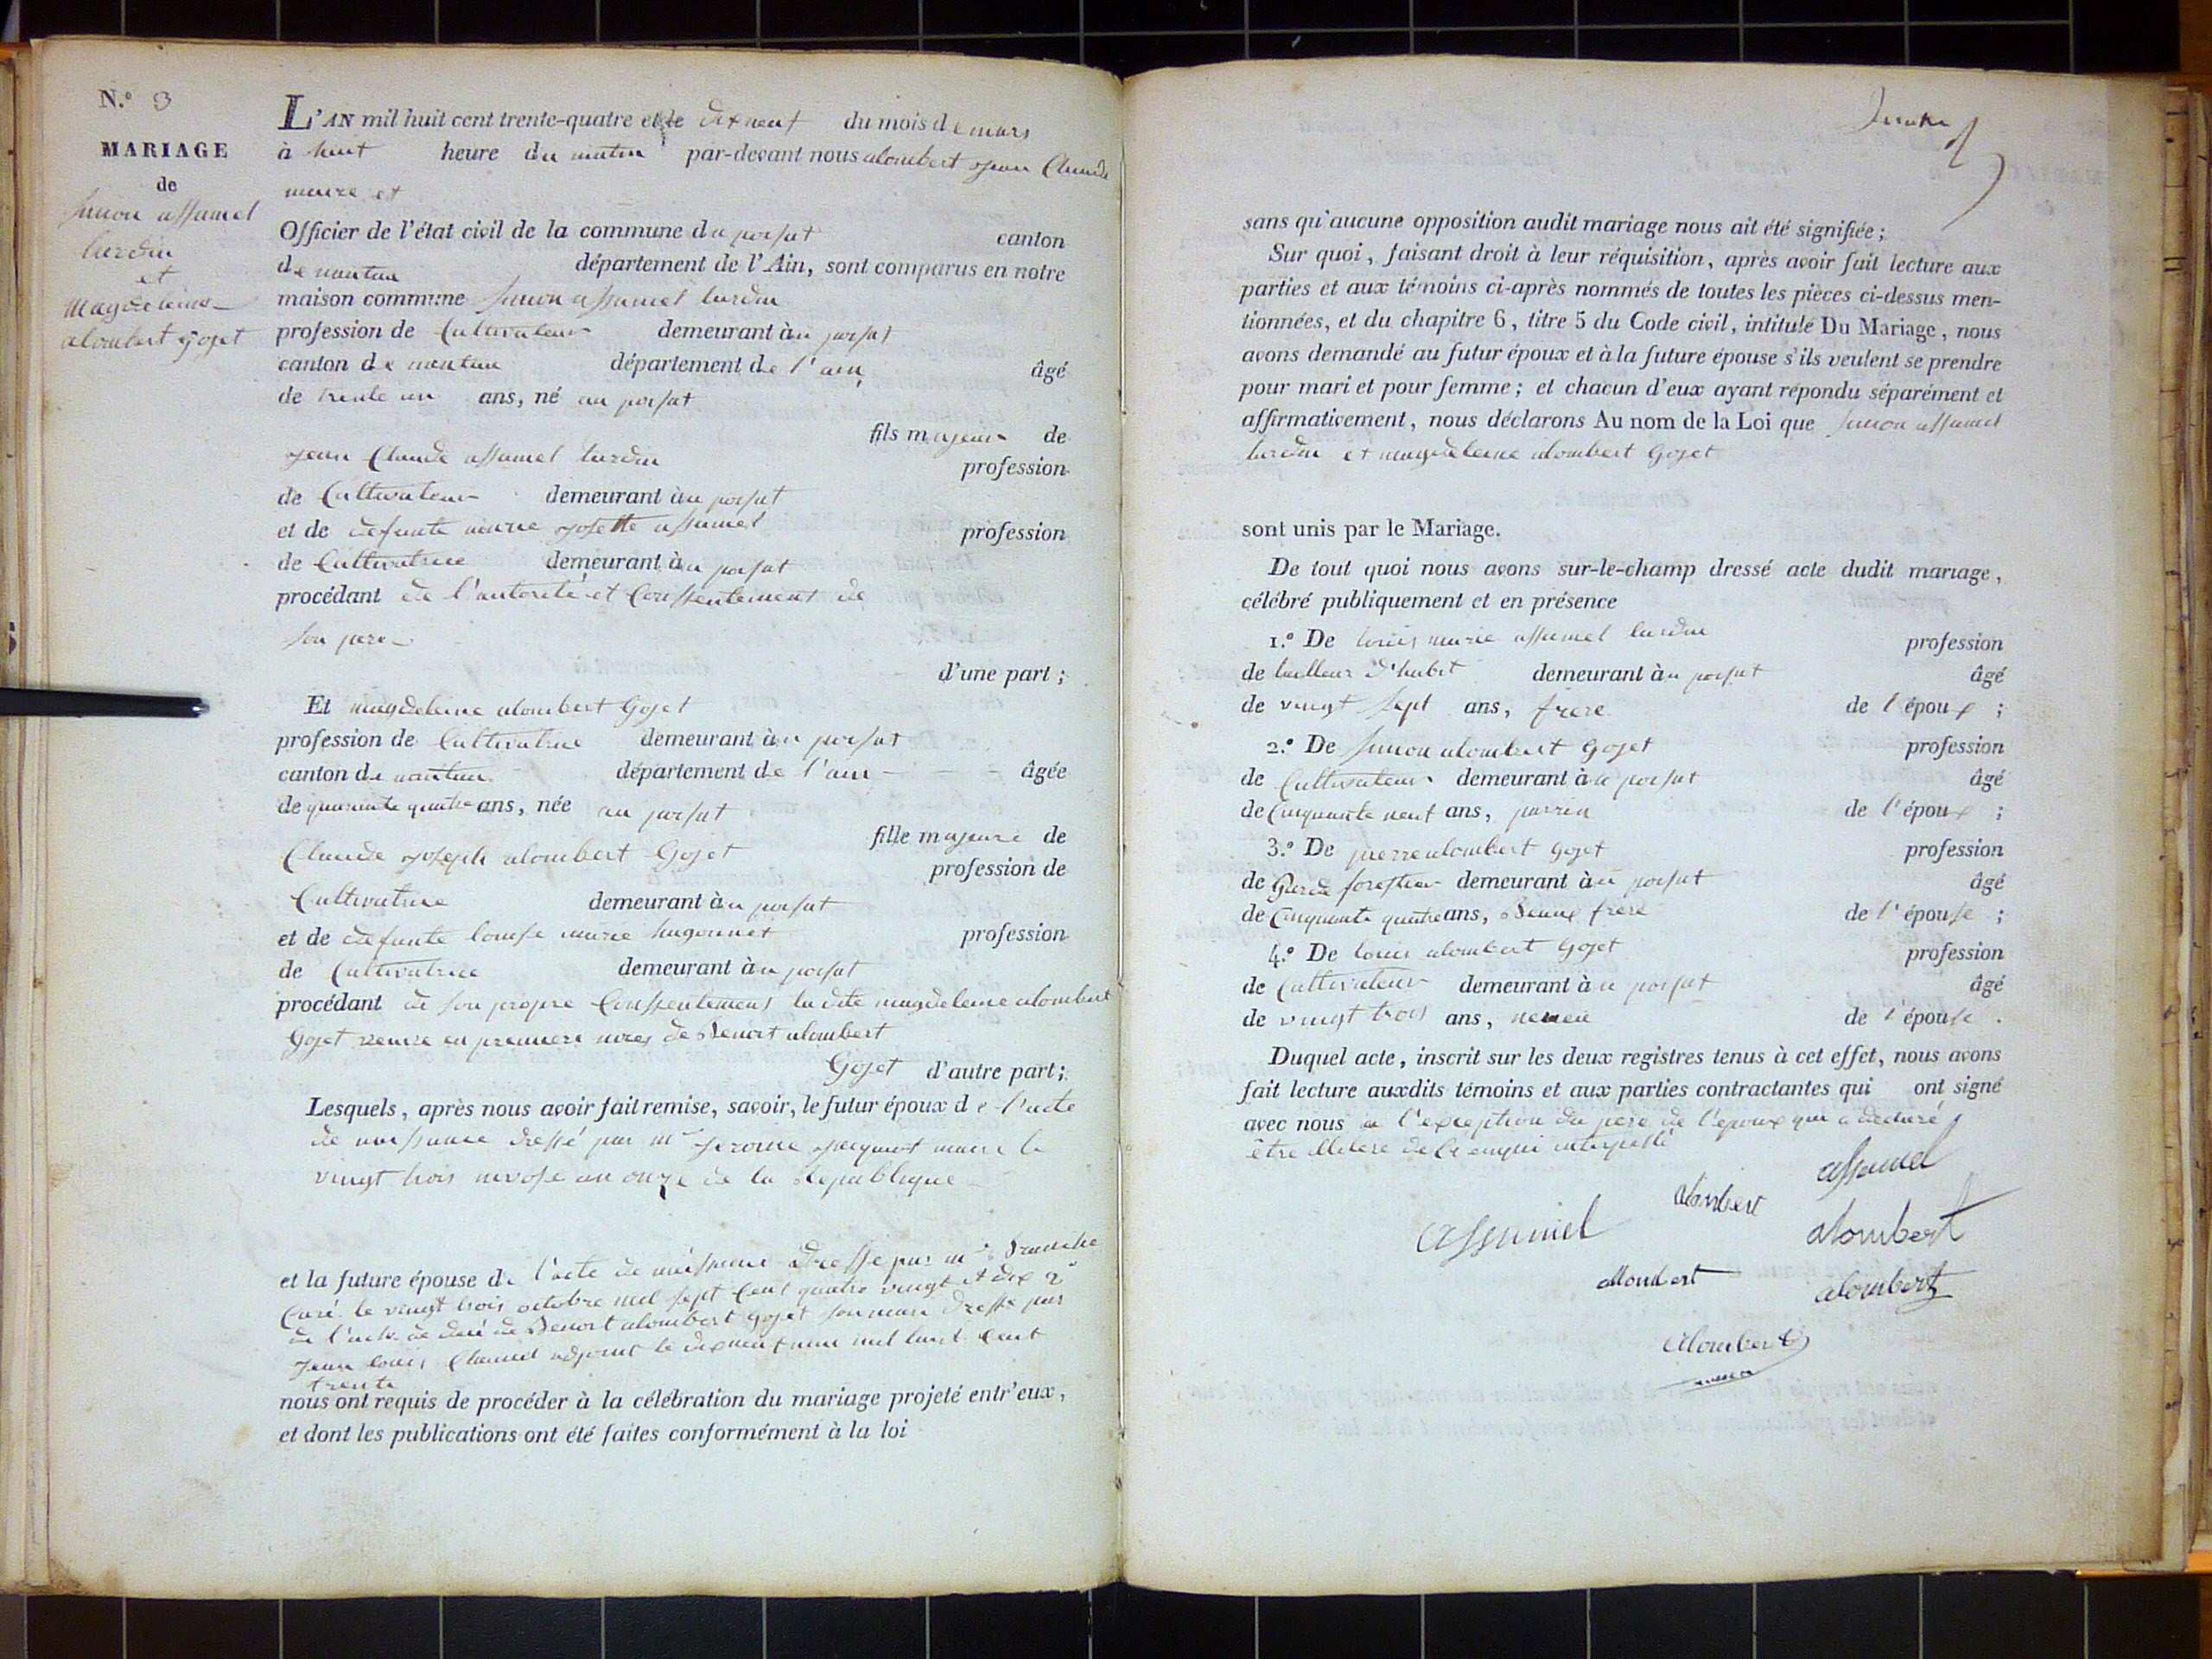 N.° 3
MARIAGE
de
Simon assumel
lurdin
et
magdeleine
alombert goget
L'AN mil huit cent trente-quatre et le dix neuf du mois de mars
à huit heure du matin par-devant nous alombert jean Claude
maire et
Officier de l'état civil de la commune du poisat canton
de nantua département de l'Ain, sont comparus en notre
maison commune Simon assumel lurdin
profession de Cultivateur demeurant àu poisat
canton de nantua département de l'ain âgé
de trente un ans, né au poisat
fils majeur de
jean Claude assumel lurdin profession
de Cultivateur demeurant àu poisat
et de defunte marie josette assumel profession
de Cultivatrice demeurant àu poisat
procédant de l'autorité et Consentement de
son pere
d'une part ;
Et magdeleine alombert Goget
profession de Cultivatrice demeurant àu poisat
canton de nantua département de l'ain âgée
de quarante quatre ans, née au poisat
fille majeure de
Claude joseph alombert Goget profession de
Cultivatrice demeurant àu poisat
et de defunte louise marie hugonnet profession
de Cultivatrice demeurant àu poisat
procédant de son propre Consentement la dite magdeleine alombert
Goget veuve en premiere noces de Benoit alombert
Goget d'autre part ;
Lesquels, après nous avoir fait remise, savoir, le futur époux de l'acte
de naissance dressé par mr jerome jacquiot maire le
vingt trois nivose an onze de la Republique
et la future épouse de l'acte de naissance dresse par mr
Curé le vingt trois octobre mil sept Cent quatre vingt et dix 2°
de l'acte de deces de Benoit alombert goget son mari dresse par
jean louis adjoint le dix neuf mil huit Cent
trente
nous ont requis de procéder à la célébration du mariage projeté entr'eux,
et dont les publications ont été faites conformément à la loi
sans qu'aucune opposition audit mariage nous ait été signifiée ;
Sur quoi, faisant droit à leur réquisition, après avoir fait lecture aux
parties et aux témoins ci-après nommés de toutes les pièces ci-dessus men-
tionnées, et du chapitre 6, titre 5 du Code civil, intitulé Du Mariage, nous
avons demandé au futur époux et à la future épouse s'ils veulent se prendre
pour mari et pour femme ; et chacun d'eux ayant répondu séparément et
affirmativement, nous déclarons Au nom de la Loi que Simon assumel
lurdin et magdeleine alombert Goget
sont unis par le Mariage.
De tout quoi nous avons sur-le-champ dressé acte dudit mariage,
célébré publiquement et en présence
1.° De louis marie assumel lurdin profession
de tailleur d'habit demeurant àu poisat âgé
de vingt sept ans, frere de l'époux ;
2.° De Simon alombert Goget profession
de Cultivateur demeurant àu poisat âgé
de Cinquante neuf ans, parrin de l'époux ;
3.° De pierre alombert goget profession
de Garde forestier demeurant àu poisat âgé
de Cinquante quatre ans, Beaux frere de l'épouse ;
4.° De louis alombert Goget profession
de Cultivateur demeurant àu poisat âgé
de vingt trois ans, neveu de l'épouse .
Duquel acte, inscrit sur les deux registres tenus à cet effet, nous avons
fait lecture auxdits témoins et aux parties contractantes qui ont signé
avec nous a l'exception du pere de l'epoux qui a declaré
être illetere de Ce enqui interpellé
assumel
alombert
assumel
alombert
alombert
alombert
alombert